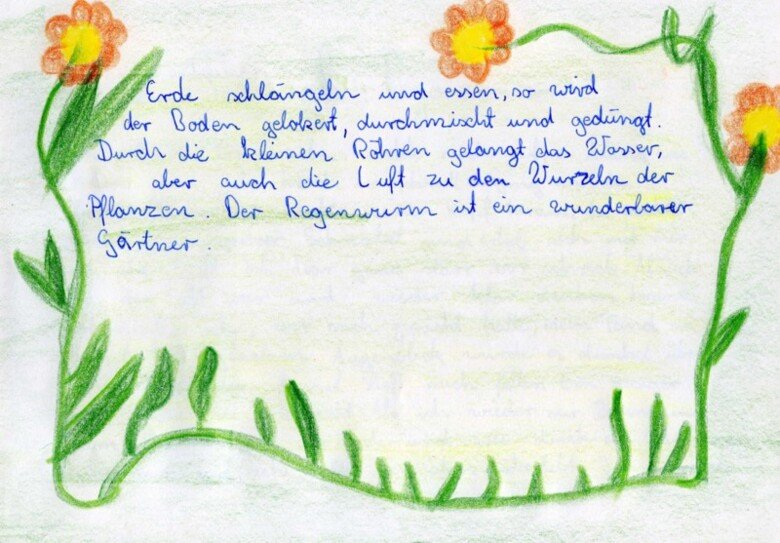 Erde schlängeln und essen, so wird
der Boden gelokert, durchmischt und gedüngt.
Durch die kleinen Röhren gelangt das Wasser,
aber auch die Luft zu den Wurzeln der
Pflanzen. Der Regenwurm ist ein wunderbarer
Gärtner.